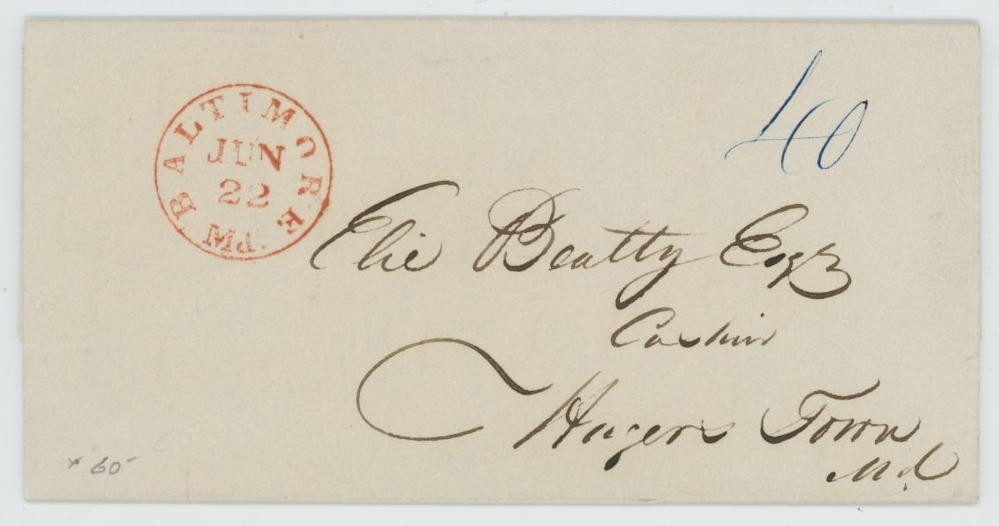 BALTIMORE Md
JUN
22
40
Elie Beatty Esqr
Cashier
Hagers Town
Md
x 60-